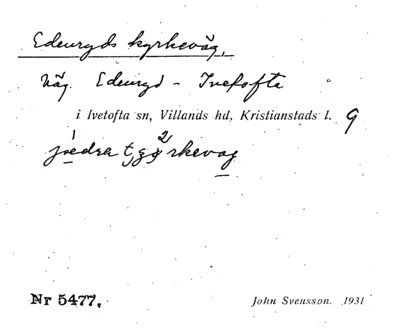 Edenryds kyrkeväg.
Väg. Edenryd - Ivetofta
i Ivetofta sn, Villands hd, Kristianstads l. 9
Nr 5477. John Svensson. 1931